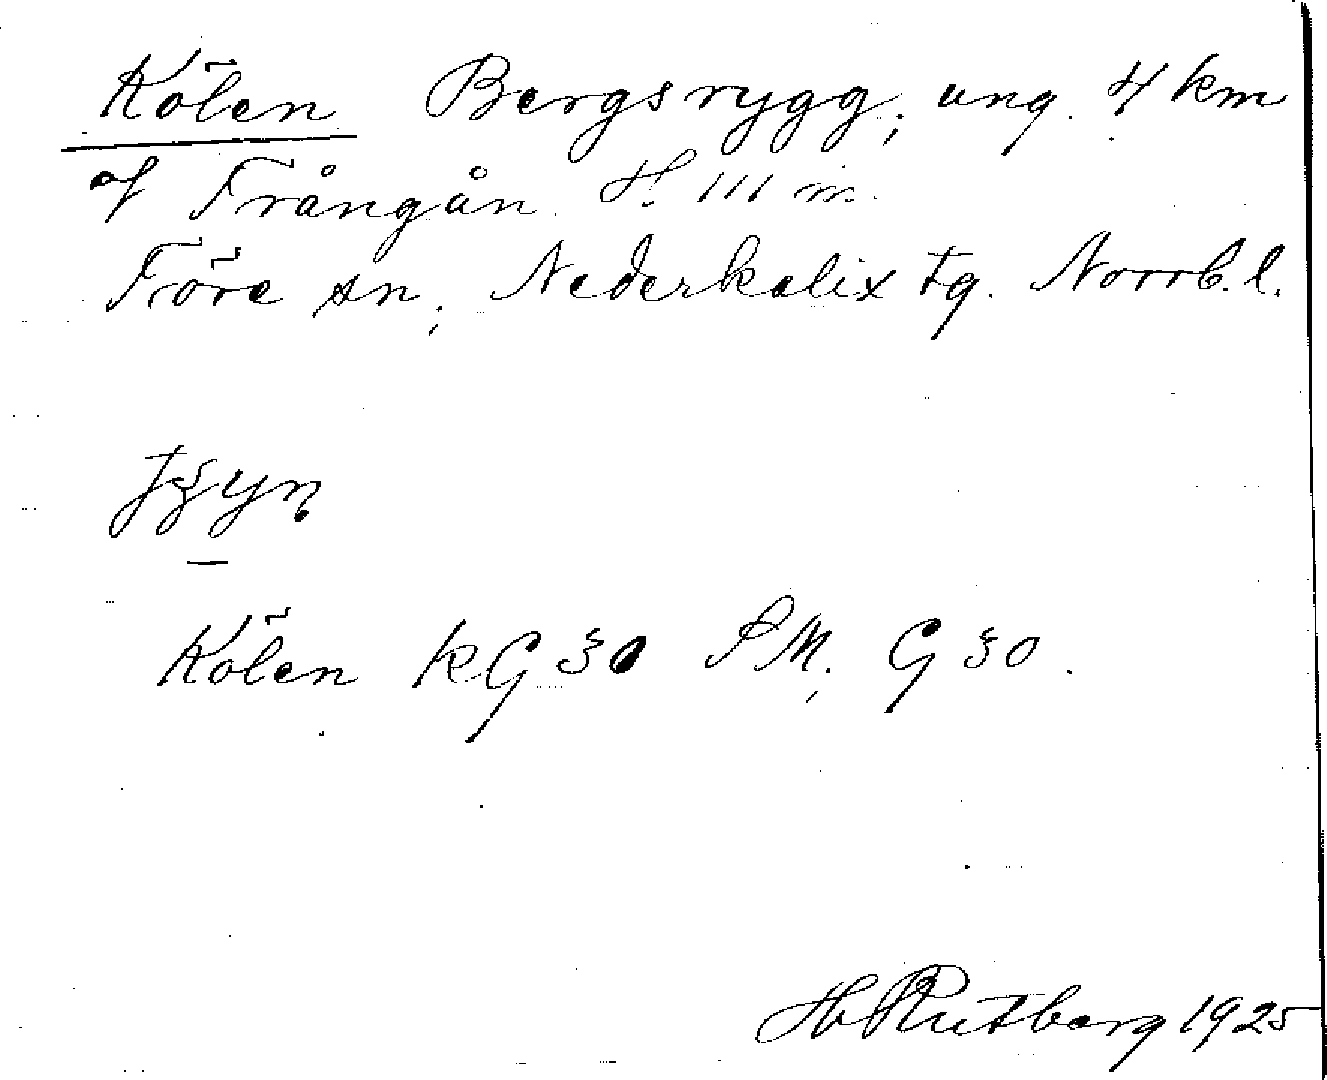 Kölen Bergsrygg, ung. 4 km
af Trångån. H. 111 m.
Töre sn, Nederkalix tg. Norrb. l.
Kölen KG 30 SM, G 30.
H Rutberg 1925